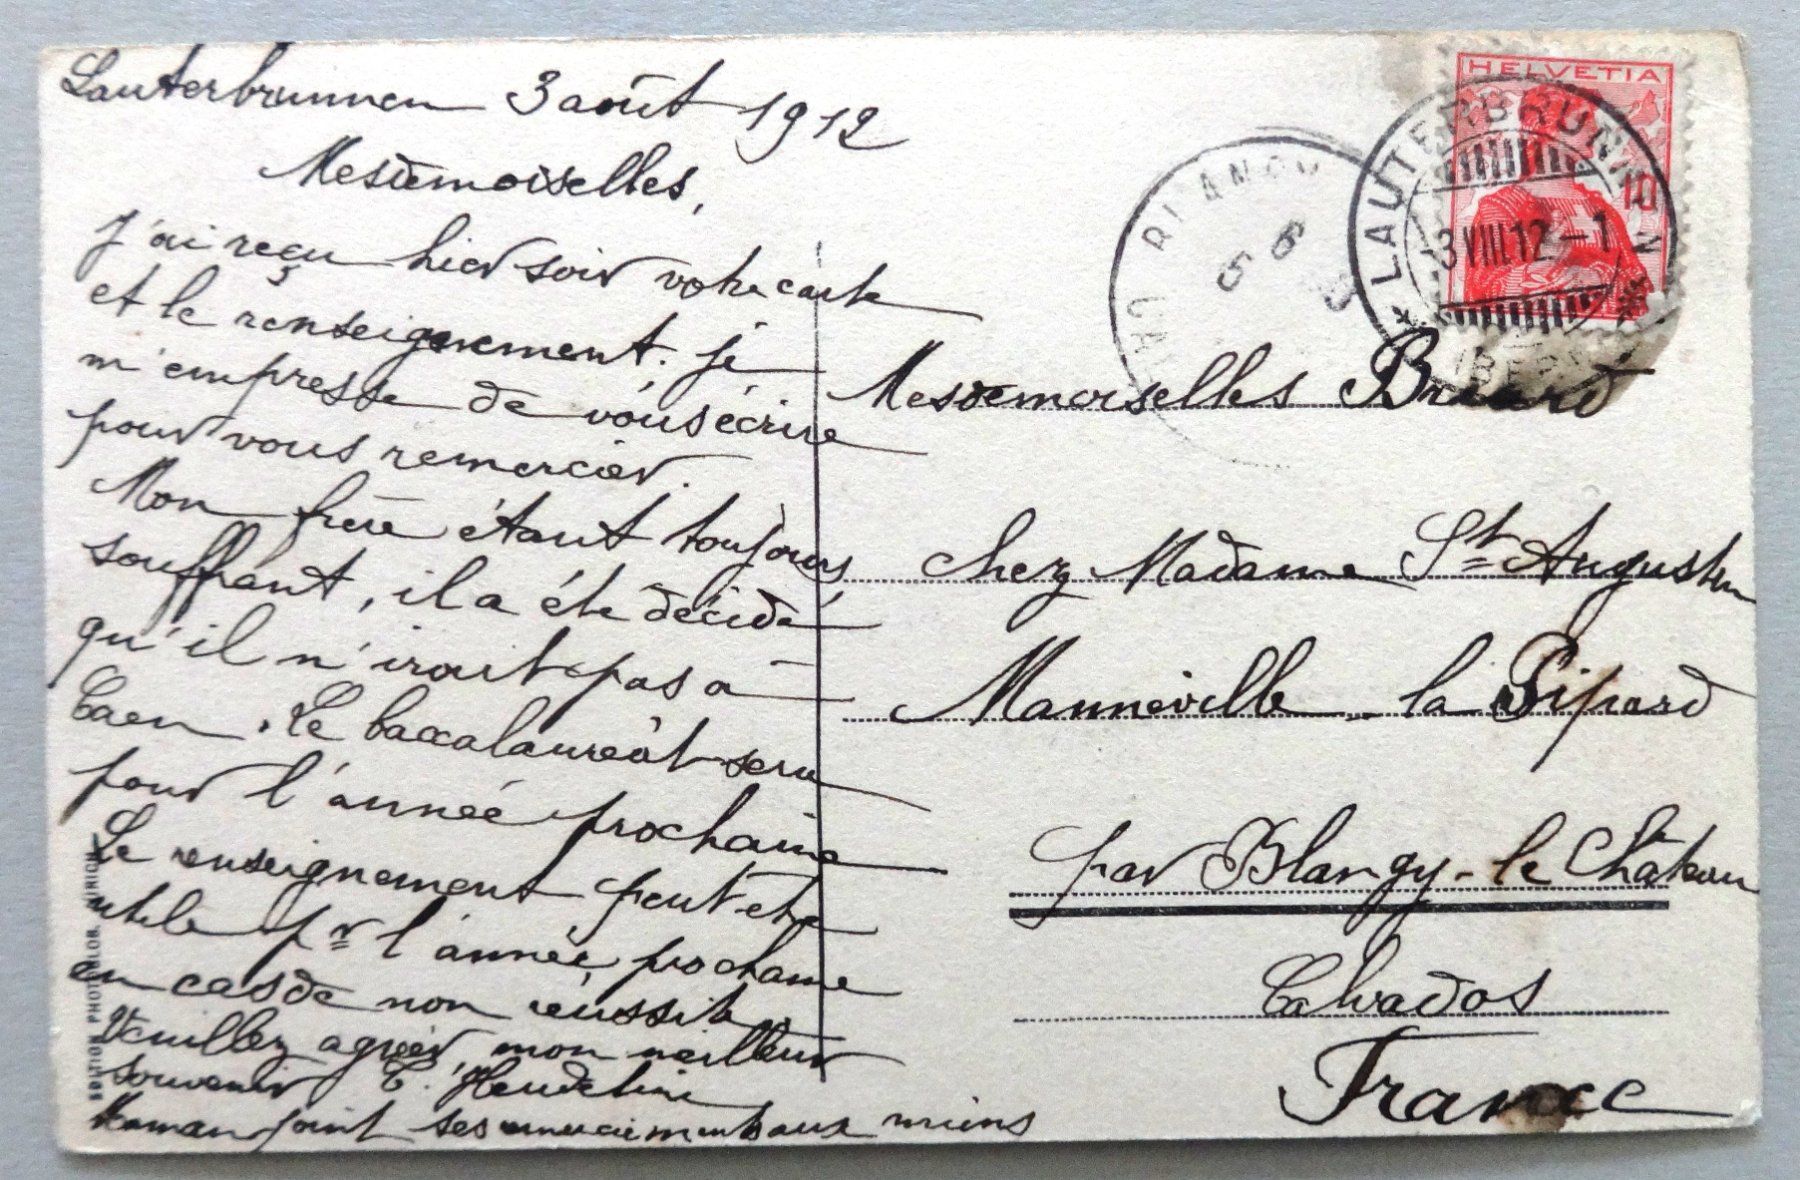 Lauterbrunnen 3 août 1912
Mesdemoiselles,
J'ai reçu hier soir votre carte
et le renseignement. je
m'empresse de vous écrire
pour vous remercier.
Mon frère étant toujours
souffrant, il a été décidé
qu'il n'irait pas à
Caen. Le baccalauréat sera
pour l'année prochaine
Le renseignement peut être
utile pr l'année prochaine
en cas de non réussite.
Veuillez agréer, mon meilleur
souvenir
Maman joint ses remerciements aux miens
EDITION PHOTOGLOB, ZÜRICH
HELVETIA
10
LAUTERBRUNNEN
3 VIII 12 – 1
(BERN)
BLANGY
5 8
Mesdemoiselles Briard
chez Madame St Augustin
Manneville-la Pipard
par Blangy-le Château
Calvados
France